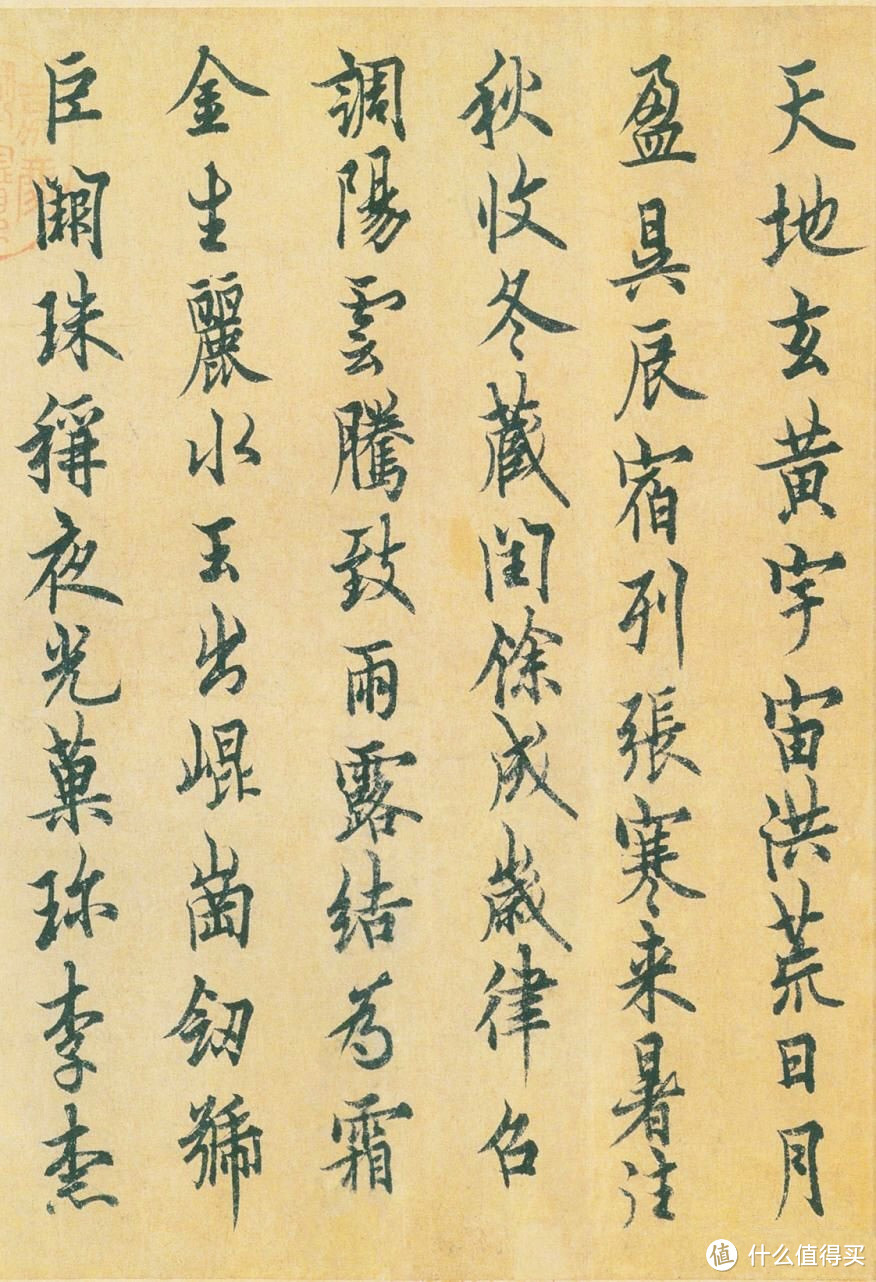 天地玄黄宇宙洪荒日月
盈昃辰宿列張寒来暑往
秋收冬藏閏餘成歲律召
調陽雲騰致雨露結為霜
金生麗水玉出崐崗劒號
巨闕珠稱夜光菓珎李柰
值 什么值得买